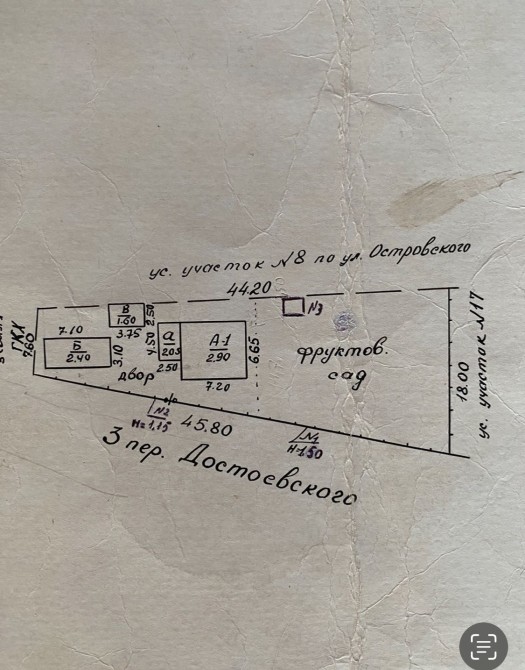 ус. участок N8 по ул. Островского
44.20
ГКХ
7.60
В
1.60
2.50
3.75
N3
7.10
Б
2.40
3.10
4.50
а
2.05
2.50
А-1
2.90
6.65
7.20
фруктов.
сад
18.00
ус. участок N17
двор
N2
H=1,15
45.80
N1
H=1.50
3 пер. Достоевского